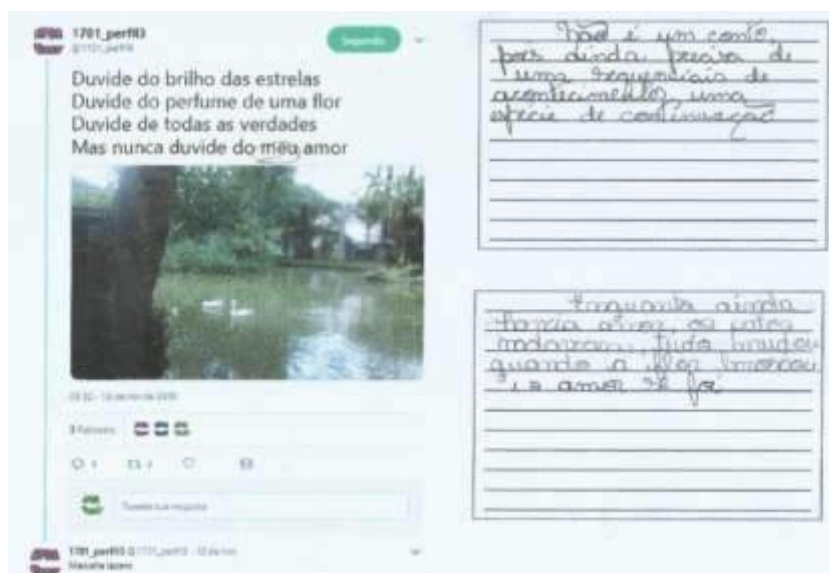 1701_perfil3
@1701_perfil3
Seguindo
Duvide do brilho das estrelas
Duvide do perfume de uma flor
Duvide de todas as verdades
Mas nunca duvide do meu amor
3 Retweets
Tweete sua resposta
1701_perfil3 @1701_perfil3
Não é um conto,
pois ainda precisa de
uma sequenciais de
acontecimentos, uma
espécie de continuação
Enquanto ainda
havia amor, os patos
nadavam, tudo mudou
quando a flor murchou
e o amor se foi